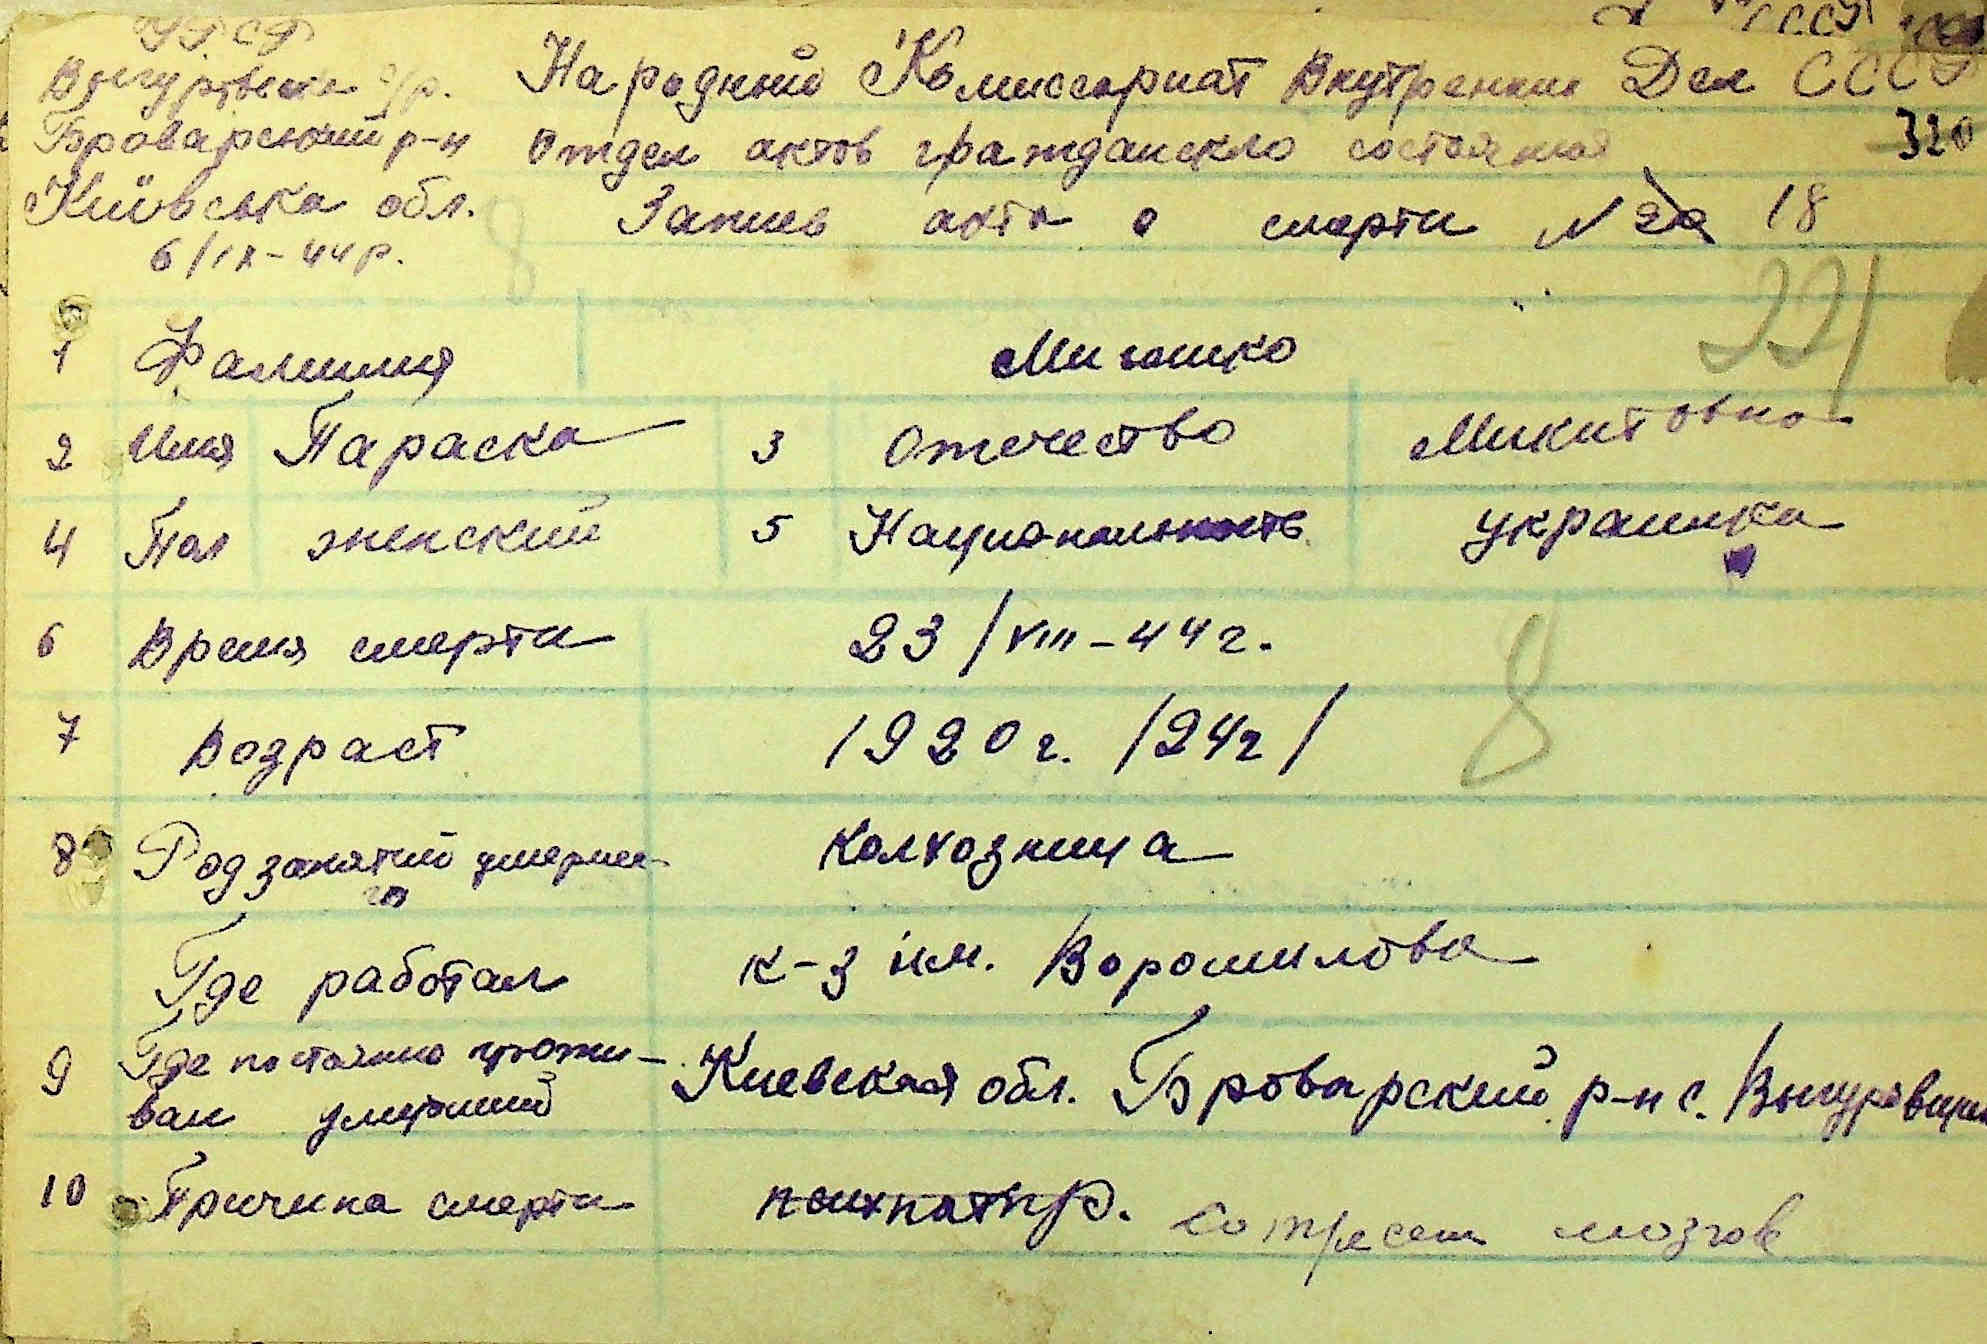 УРСР
СССР
Вигурівська с/р. Народный Комиссариат Внутренних Дел СССР
Броварський р-н Отдел актов гражданского состояния 320
Київська обл. Запись акта о смерти N 18
6/IX-44р.
221
8
1 Фамилия
2 Имя Параска 3 Отечество Микитовна
4 Пол женский 5 Национальность украинка
6 Время смерти 23/VIII-44г.
7 Возраст 1920г. /24г/
8
8 Род занятий умерше-
го колхозница
Где работал к-з им. Ворошилова
9 Где постоянно прожи-
вал умерший Киевская обл. Броварский р-н с. Выгуровщина
10 Причина смерти сотресен мозгов